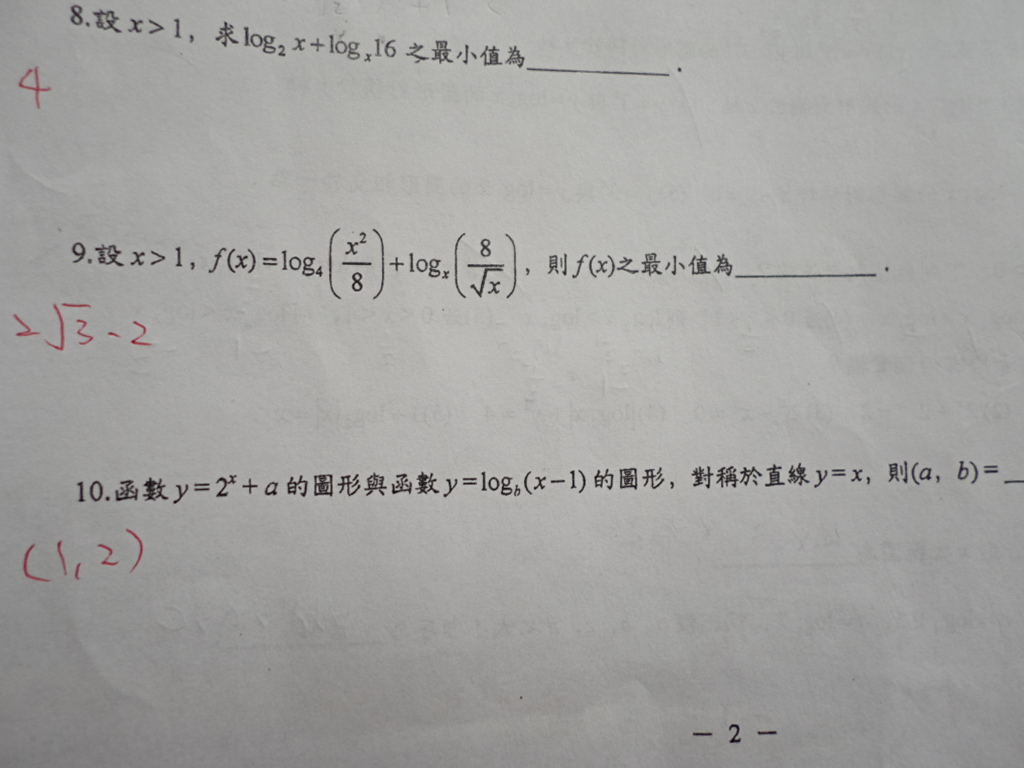 8.設 x > 1，求 log₂ x + logₓ 16 之最小值為________．
4
9.設 x > 1，f(x) = log₄(x²/8) + logₓ(8/√x)，則 f(x) 之最小值為________．
2√3 - 2
10.函數 y = 2ˣ + a 的圖形與函數 y = log_b (x−1) 的圖形，對稱於直線 y = x，則(a，b) = _
(1, 2)
— 2 —